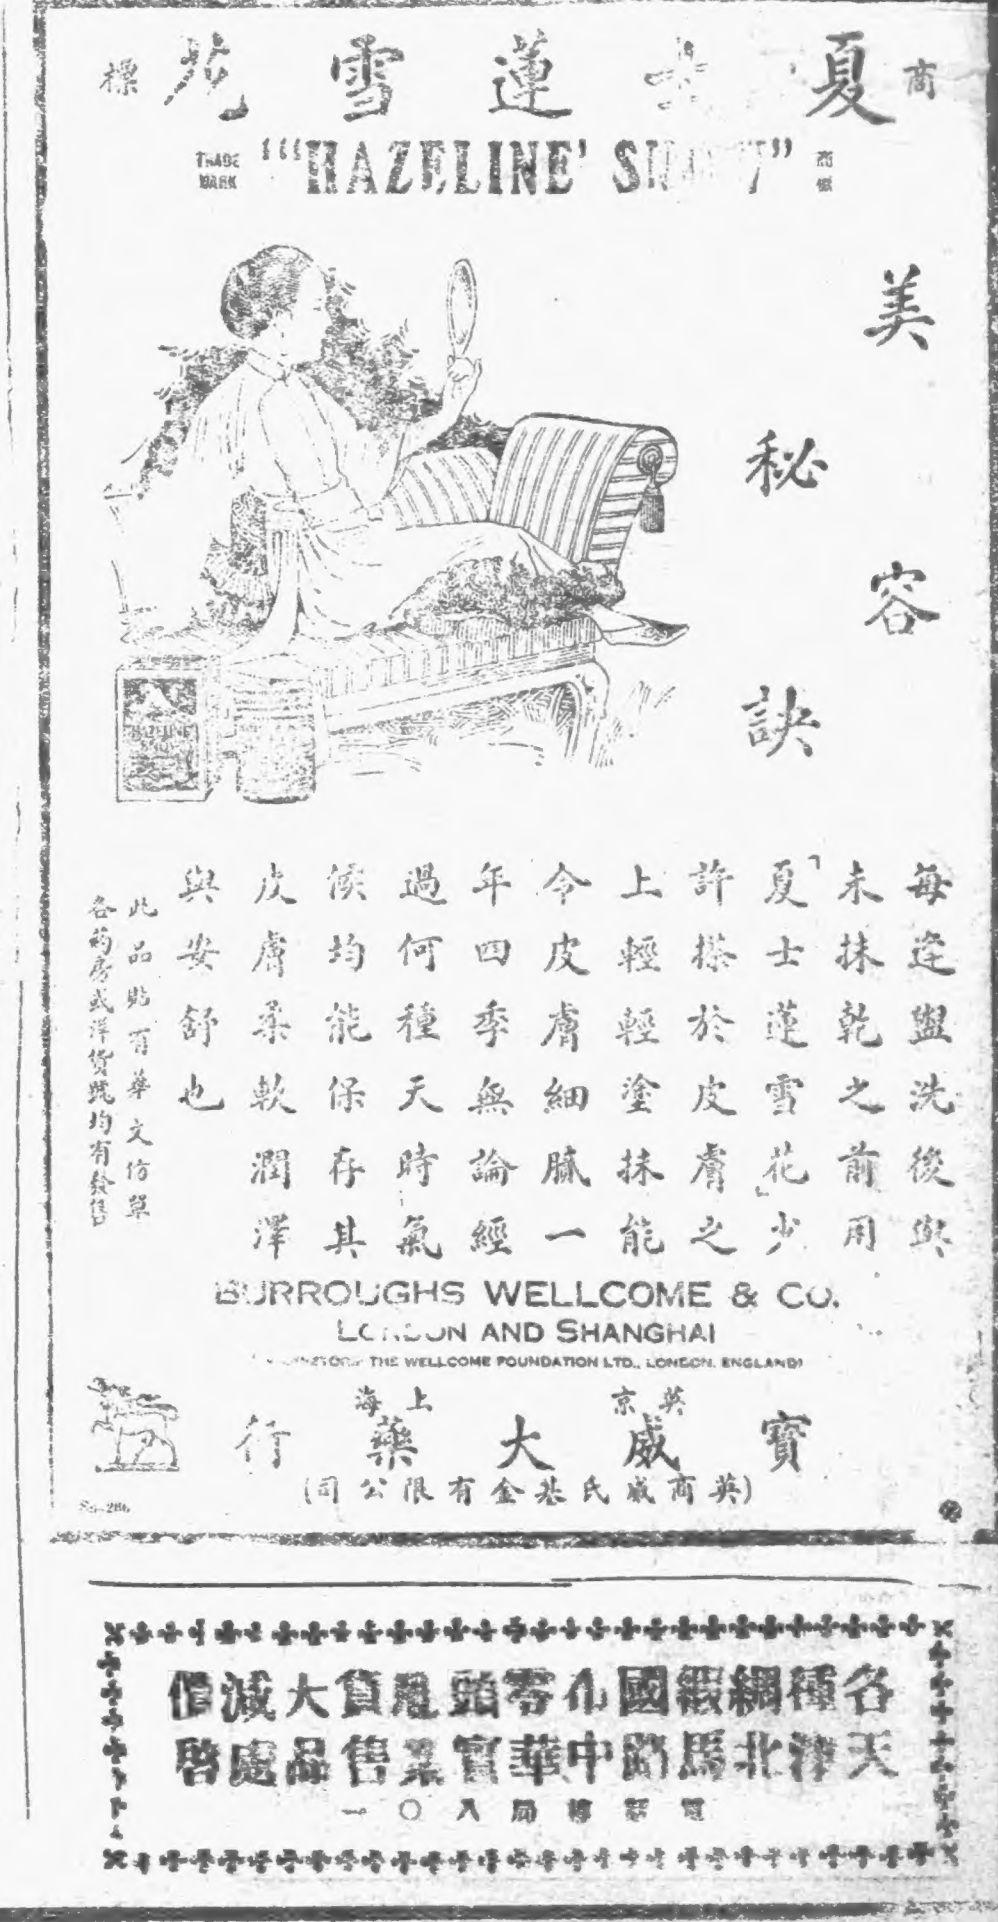 商標 夏士蓮雪花
TRADE MARK "'HAZELINE' SNOW" 商標
美容
秘訣
每逢盥洗後與
未抹乾之前用
「夏士蓮雪花」少
許搽於皮膚之
上輕輕塗抹能
令皮膚細膩一
年四季無論經
過何種天時氣
候均能保存其
皮膚柔軟潤澤
與安舒也
此品貼有華文仿單
各葯房或洋貨號均有發售
BURROUGHS WELLCOME & CO.
LONDON AND SHANGHAI
THE WELLCOME FOUNDATION LTD., LONDON, ENGLAND)
英京 上海
寶威大藥行
(英商威氏基金有限公司)
各種綢緞國化零頭剩貨大減價
天津北馬路中華實業售品處啓
電話總局八〇一